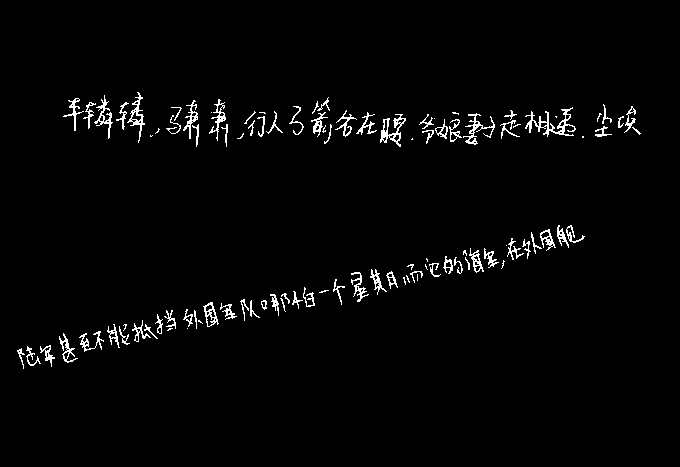 车辚辚,马萧萧,行人弓箭各在腰.爷娘妻子走相送.尘埃
陆军甚至不能抵挡外国军队哪怕一个星期,而它的海军,在外国舰